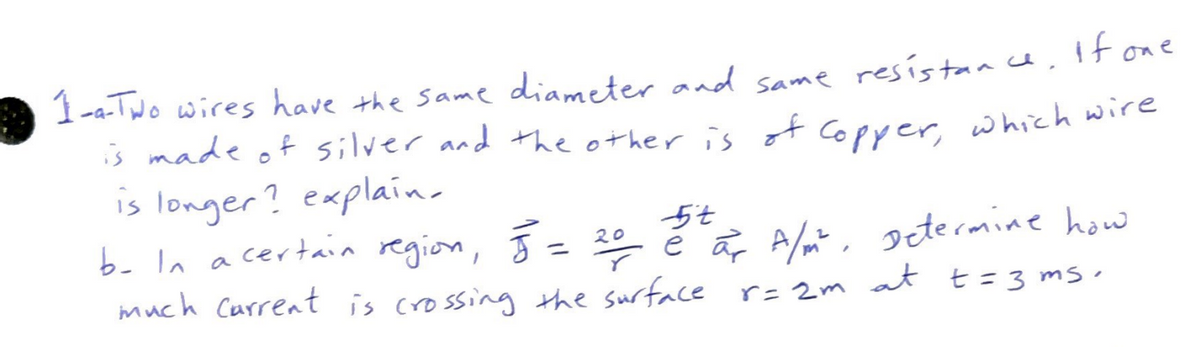 1-a-Two wires have the same diameter and same resistance. If one
is made of silver and the other is of Copper, which wire
is longer? explain.
b- In a certain region, J⃗ = 20/r e^-5t a⃗r A/m². Determine how
much Current is crossing the surface r=2m at t=3 ms.